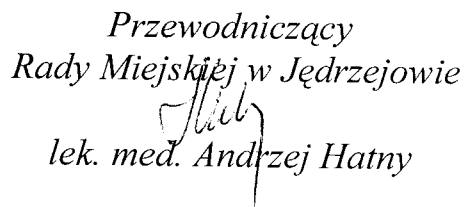 Przewodniczący
Rady Miejskiej w Jędrzejowie
lek. med. Andrzej Hatny